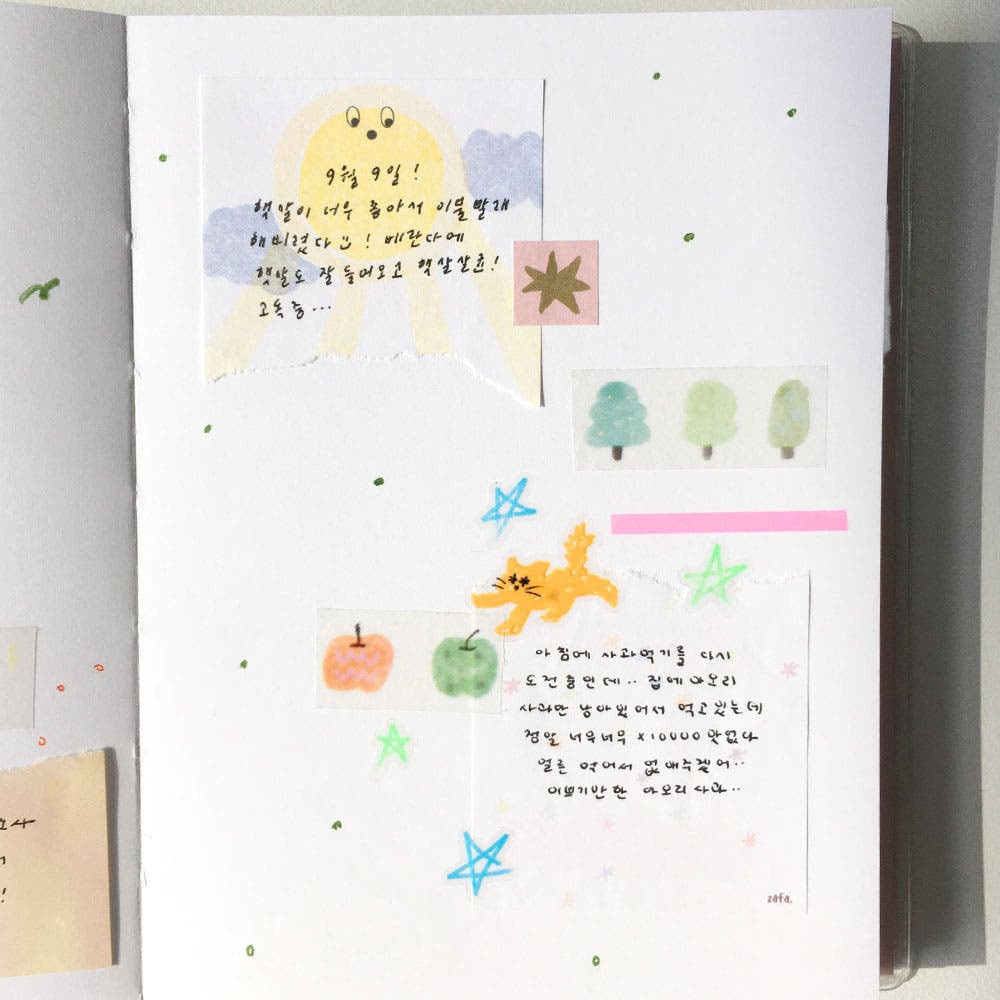 9월 9일!
햇살이 너무 좋아서 이불빨래
해버렸다! 베란다에
햇살도 잘 들어오고 햇살살균!
고독중...
아침에 사과먹기를 다시
도전중인데.. 집에 아오리
사과만 남아있어서 먹고있는데
정말 너무너무 x10000 맛없다
얼른 먹어서 없애주겠어..
이쁘기만 한 아오리 사과..
zafa.